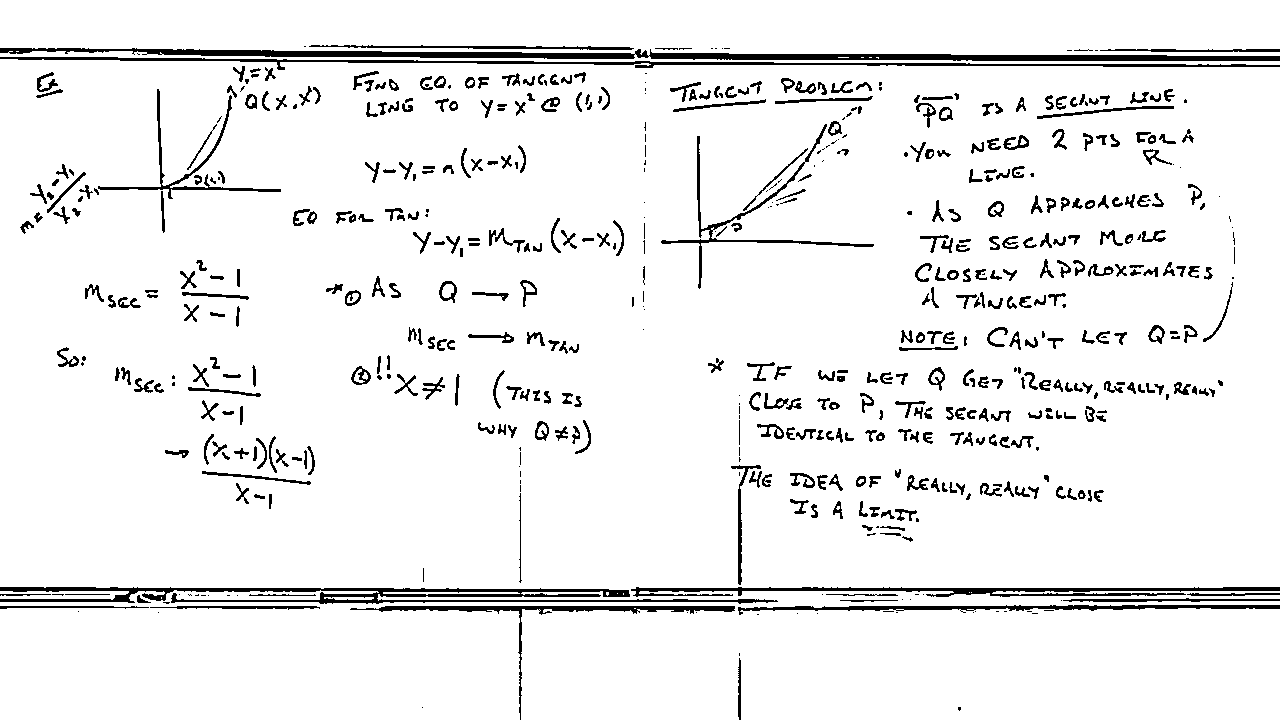 Ex
Y=X²
Q(X,X)
P(1,1)
m = Y₂-Y₁ / X₂-X₁
FIND EQ. OF TANGENT
LINE TO Y=X² @ (1,1)
Y-Y₁=m(X-X₁)
EQ FOR TAN:
Y-Y₁=M_TAN(X-X₁)
M_SEC = X²-1 / X-1
* ① AS Q → P
M_SEC → M_TAN
SO: M_SEC: X²-1 / X-1
→ (X+1)(X-1) / X-1
② !! X≠1 (THIS IS
WHY Q≠P)
TANGENT PROBLEM:
Q
P
PQ IS A SECANT LINE.
• YOU NEED 2 PTS FOR A
LINE.
• AS Q APPROACHES P,
THE SECANT MORE
CLOSELY APPROXIMATES
A TANGENT.
NOTE: CAN'T LET Q=P
* IF WE LET Q GET "REALLY, REALLY, REALLY"
CLOSE TO P, THE SECANT WILL BE
IDENTICAL TO THE TANGENT.
THE IDEA OF "REALLY, REALLY" CLOSE
IS A LIMIT.